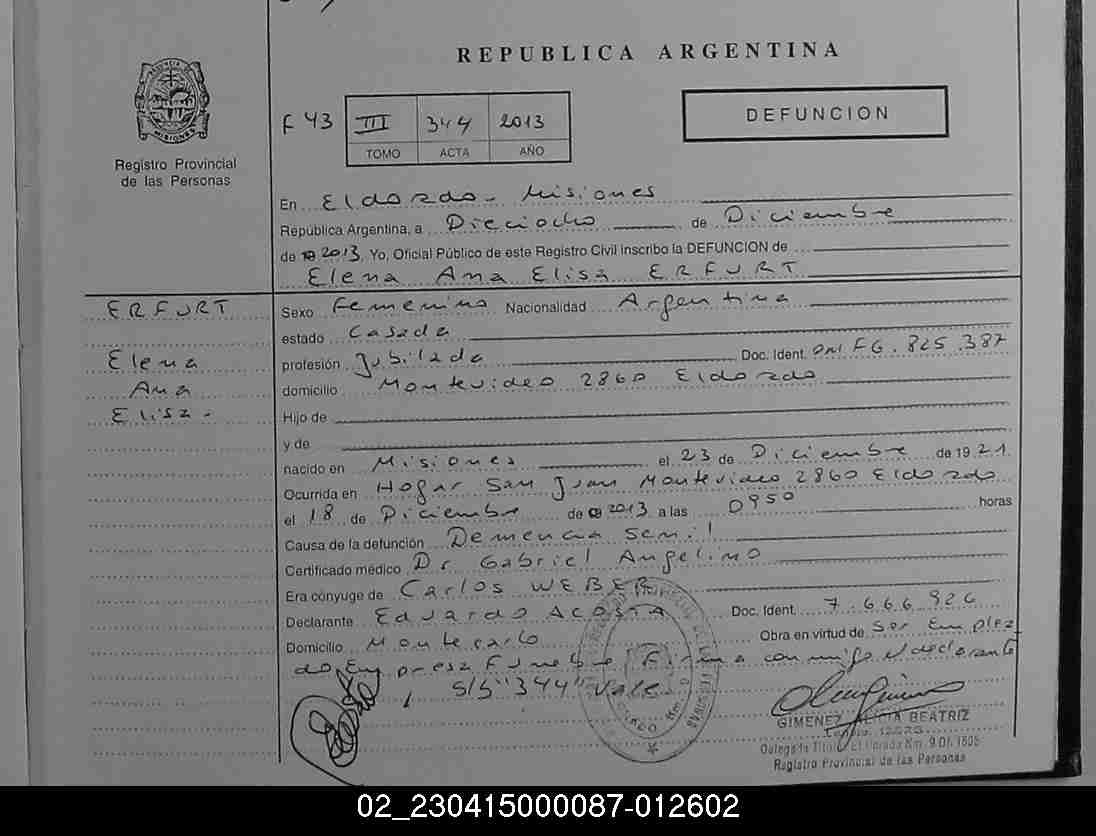 REPUBLICA ARGENTINA
Registro Provincial
de las Personas
F 43 III 344 2013
TOMO ACTA AÑO
DEFUNCION
En Eldorado - Misiones
República Argentina, a Dieciocho de Diciembre
de 2013. Yo, Oficial Público de este Registro Civil inscribo la DEFUNCION de
Elena Ana Elisa ERFURT
ERFURT
Elena
Ana
Elisa -
Sexo Femenino Nacionalidad Argentina
estado Casada
profesión Jubilada Doc. Ident. DNI F6.825.387
domicilio Montevideo 2860 Eldorado
Hijo de
y de
nacido en Misiones el 23 de Diciembre de 1921.
Ocurrida en Hogar San Juan Montevideo 2860 Eldorado
el 18 de Diciembre de 2013 a las 0950 horas
Causa de la defunción Demencia Senil
Certificado médico Dr Gabriel Angelino
Era cónyuge de Carlos WEBER
Declarante Eduardo ACOSTA Doc. Ident. 7.666.926
Domicilio Montecarlo Obra en virtud de Ser Emplea
do Empresa Funebre Firma conmigo el declarante
S/b "344" Vale.
GIMENEZ ALICIA BEATRIZ
Delegada Titular Eldorado Km. 9 Of. 1605
Registro Provincial de las Personas
02_230415000087-012602